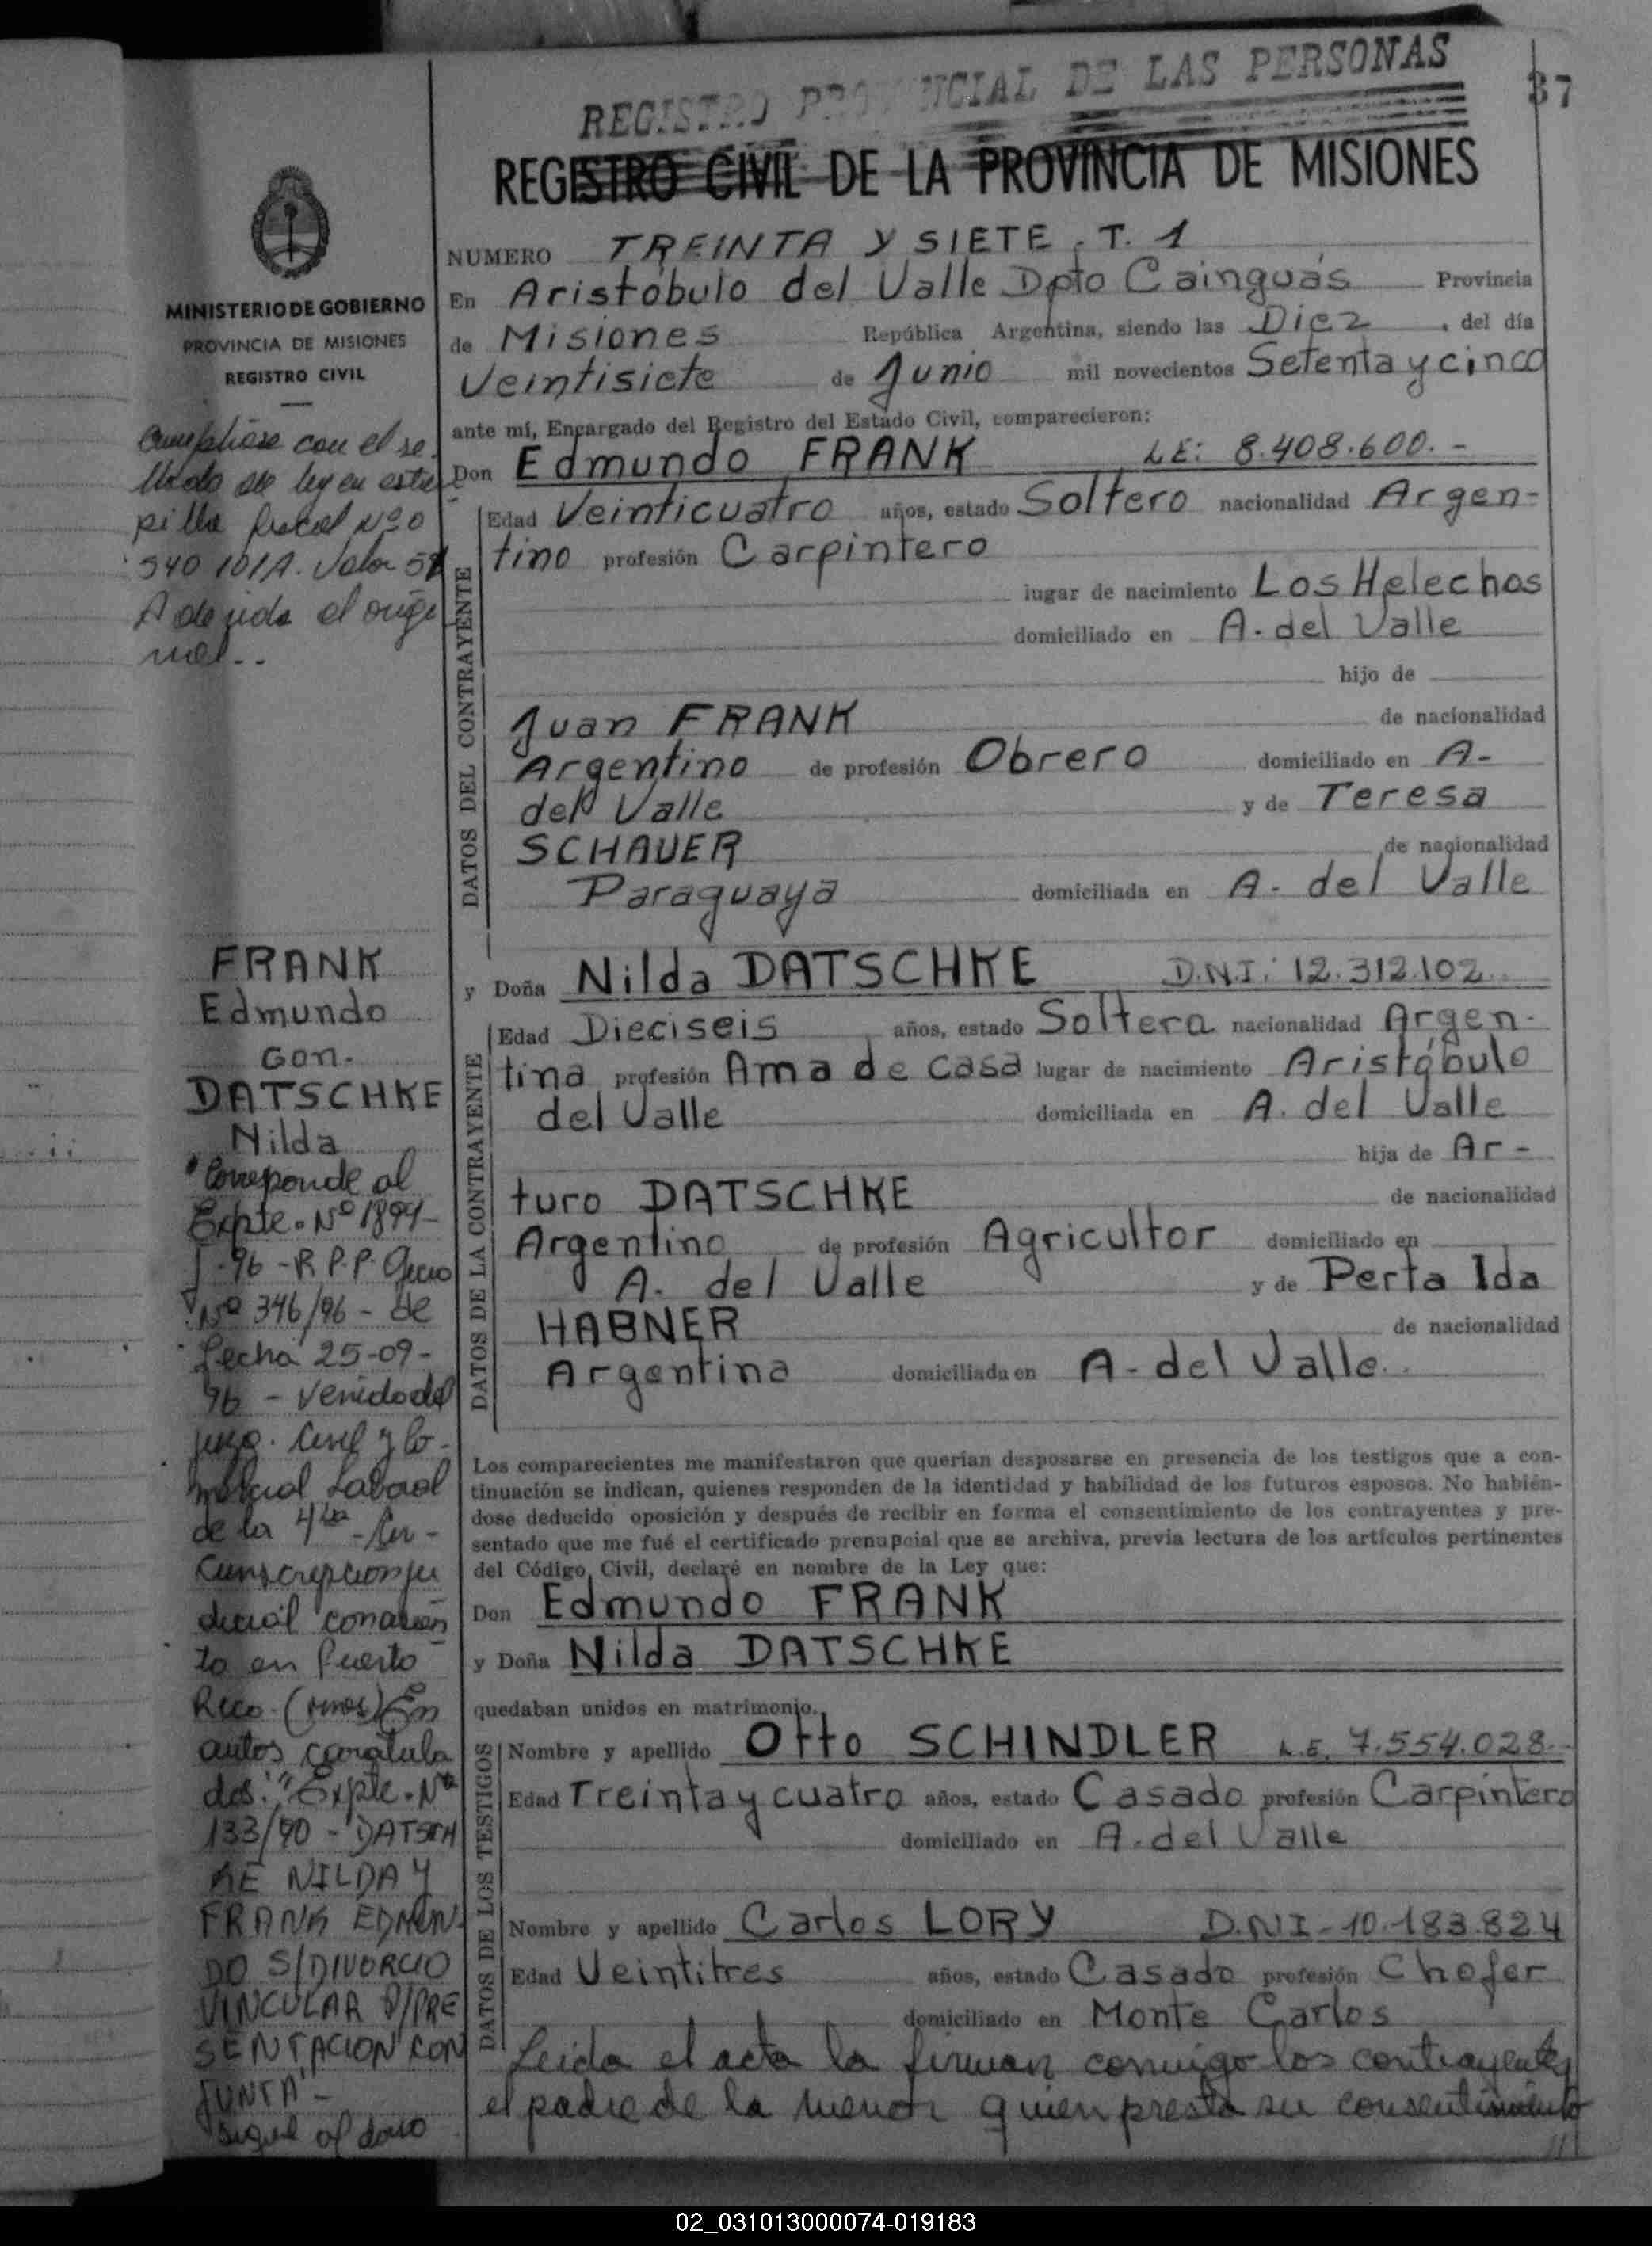 REGISTRO PROVINCIAL DE LAS PERSONAS
37
REGISTRO CIVIL DE LA PROVINCIA DE MISIONES
MINISTERIO DE GOBIERNO
PROVINCIA DE MISIONES
REGISTRO CIVIL
NUMERO TREINTA Y SIETE . T. 1
En Aristóbulo del Valle Dpto Cainguás Provincia
de Misiones República Argentina, siendo las Diez , del día
Veintisiete de Junio mil novecientos Setenta y cinco
ante mí, Encargado del Registro del Estado Civil, comparecieron:
Don Edmundo FRANK LE: 8.408.600.-
Cumpliose con el se-
llado de ley en estam
pilla fiscal Nº 0
540 101A. Valor
Adherida al origi
nal..
DATOS DEL CONTRAYENTE
Edad Veinticuatro años, estado Soltero nacionalidad Argen-
tino profesión Carpintero
lugar de nacimiento Los Helechos
domiciliado en A. del Valle
hijo de
Juan FRANK de nacionalidad
Argentino de profesión Obrero domiciliado en A-
del Valle y de Teresa
SCHAUER de nacionalidad
Paraguaya domiciliada en A. del Valle
FRANK
Edmundo
Con.
DATSCHKE
Nilda
y Doña Nilda DATSCHKE D.N.I.: 12.312.102.
DATOS DE LA CONTRAYENTE
Edad Dieciseis años, estado Soltera nacionalidad Argen-
tina profesión Ama de casa lugar de nacimiento Aristóbulo
del Valle domiciliada en A. del Valle
hija de Ar-
turo DATSCHKE de nacionalidad
Argentino de profesión Agricultor domiciliado en
A. del Valle y de Perta Ida
HABNER de nacionalidad
Argentina domiciliada en A- del Valle.
Los comparecientes me manifestaron que querían desposarse en presencia de los testigos que a con-
tinuación se indican, quienes responden de la identidad y habilidad de los futuros esposos. No habién-
dose deducido oposición y después de recibir en forma el consentimiento de los contrayentes y pre-
sentado que me fué el certificado prenupcial que se archiva, previa lectura de los artículos pertinentes
del Código Civil, declaré en nombre de la Ley que:
Don Edmundo FRANK
y Doña Nilda DATSCHKE
quedaban unidos en matrimonio.
DATOS DE LOS TESTIGOS
Nombre y apellido Otto SCHINDLER L.E. 7.554.028.-
Edad Treinta y cuatro años, estado Casado profesión Carpintero
domiciliado en A. del Valle
Nombre y apellido Carlos LORY D.N.I-10.183.824
Edad Veintitres años, estado Casado profesión Chofer
domiciliado en Monte Carlos
Leida el acta la firman conmigo los contrayentes
el padre de la menor quien presta su consentimiento
Correponde al
Expte. Nº 1894-
J-96 - R.P.P. Oficio
Nº 346/96 - de
fecha 25-09-
96 - venido del
juzg. Civil y Co-
mercial Laboral
de la 4ta - Cir-
cunscripcion ju
dicial con asien
to en Puerto
Rico - (mnes) En
autos caratula
dos: "Expte. Nº
133/90 - DATSCH
KE NILDA Y
FRANK EDMUN-
DO S/DIVORCIO
VINCULAR P/PRE
SENTACION CON
JUNTA" -
sigue al dorso
02_031013000074-019183